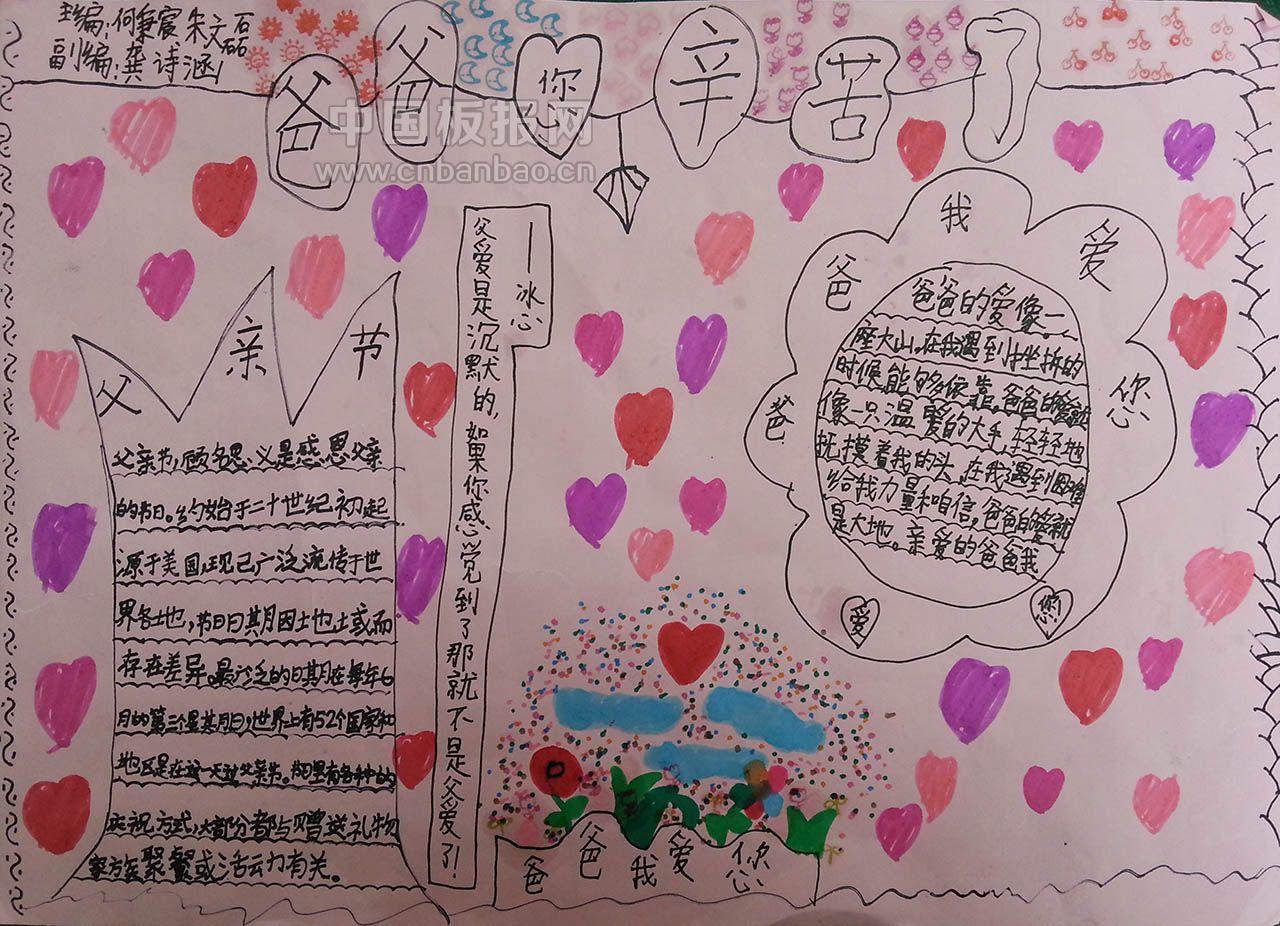 主编:何秉宸 朱文磊
副编:龚诗涵
爸爸你辛苦了
中国板报网
www.cnbanbao.cn
父亲节
父亲节,顾名思义是感恩父亲
的节日。约始于二十世纪初起
源于美国,现已广泛流传于世
界各地,节日日期因地域而
存在差异。最广泛的日期在每年6
月的第三个星期日,世界上有52个国家和
地区是在这一天过父亲节。节日里有各种的
庆祝方式,大部分都与赠送礼物
家族聚餐或活动有关。
——冰心
父爱是沉默的,如果你感觉到了那就不是父爱了!
爸爸我爱您
爸爸的爱像一
座大山。在我遇到挫折的
时候,能够依靠,爸爸的爱就
像一只温暖的大手,轻轻地
抚摸着我的头,在我遇到困难
给我力量和信,爸爸的爱就
是大地。亲爱的爸爸我
爱
您
爸爸我爱您